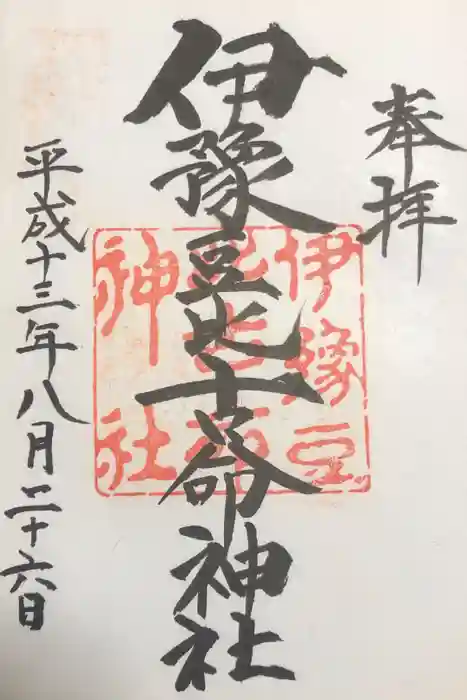 奉拝
伊豫豆比古命神社
平成十三年八月二十六日
伊豫豆
比古命
神社